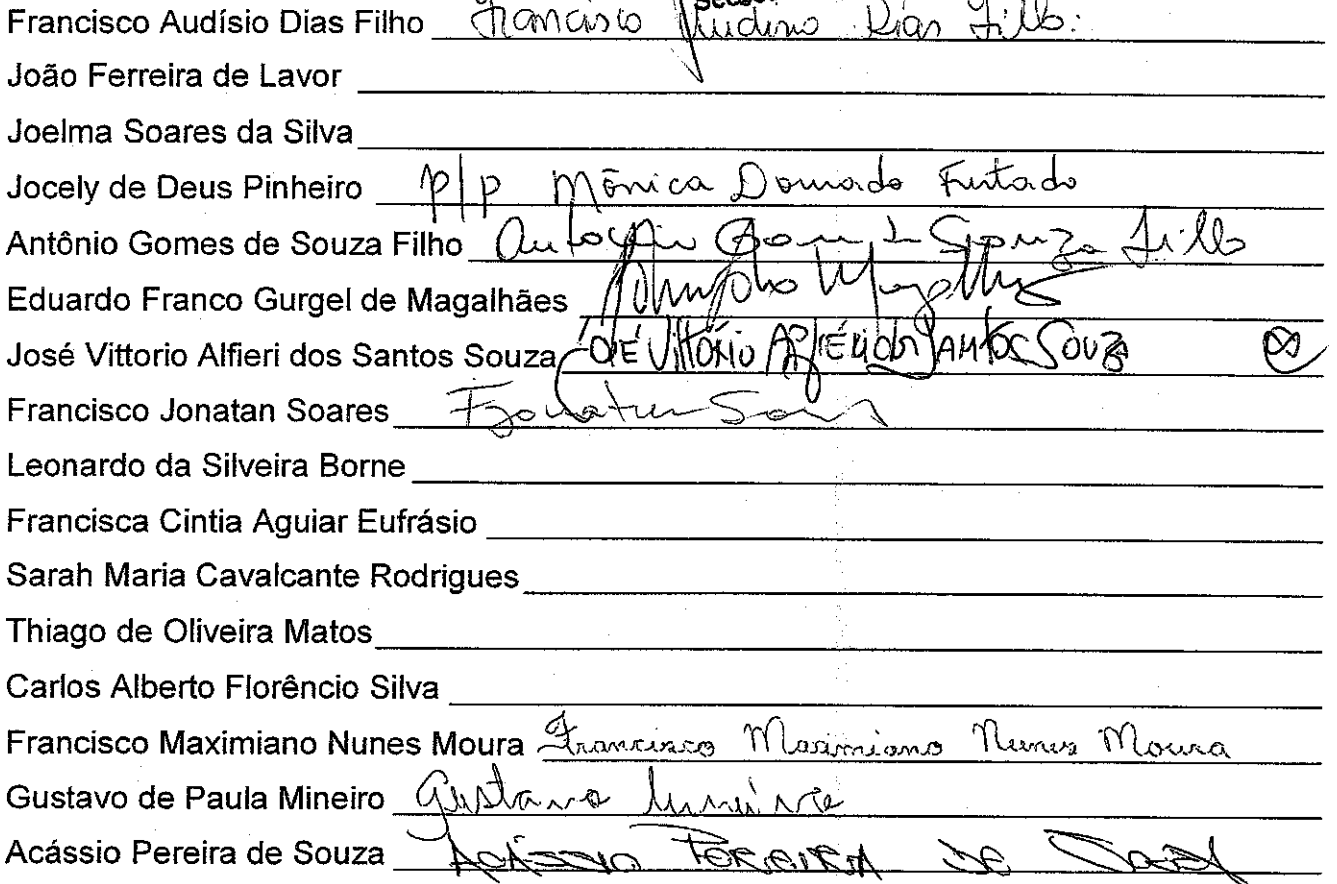 Francisco Audísio Dias Filho Francisco Audísio Dias Filho.
João Ferreira de Lavor
Joelma Soares da Silva
Jocely de Deus Pinheiro p/p Mônica Dourado Furtado
Antônio Gomes de Souza Filho Antonio Gomes de Souza Filho
Eduardo Franco Gurgel de Magalhães
José Vittorio Alfieri dos Santos Souza José Vittório Alfieri dos Santos Souza
Francisco Jonatan Soares FJonatan Soares
Leonardo da Silveira Borne
Francisca Cintia Aguiar Eufrásio
Sarah Maria Cavalcante Rodrigues
Thiago de Oliveira Matos
Carlos Alberto Florêncio Silva
Francisco Maximiano Nunes Moura Francisco Maximiano Nunes Moura
Gustavo de Paula Mineiro Gustavo Mineiro
Acássio Pereira de Souza Acássio Pereira de Souza